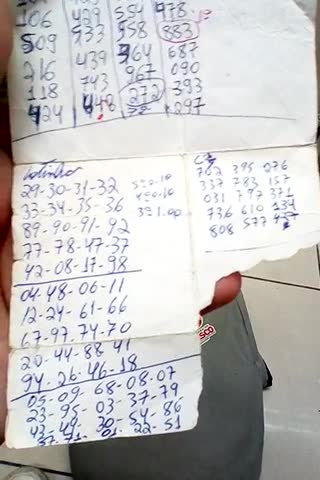 106 427 554 978
509 533 958 883
216 439 964 687
118 743 967 090
424 448 272 393
297
29-30-31-32
33-34-35-36
89-90-91-92
77-78-47-37
42-08-17-98
04-48-06-11
12-24-61-66
67-97-74-70
20-44-88-41
94-26-46-18
05-09-68-08-07
23-95-03-37-79
43-49-30-54-86
37-71-01-22-51
5=0-10
4=0-10
3=1.00
762 395 076
337 783 157
031 797 331
736 610 134
808 577